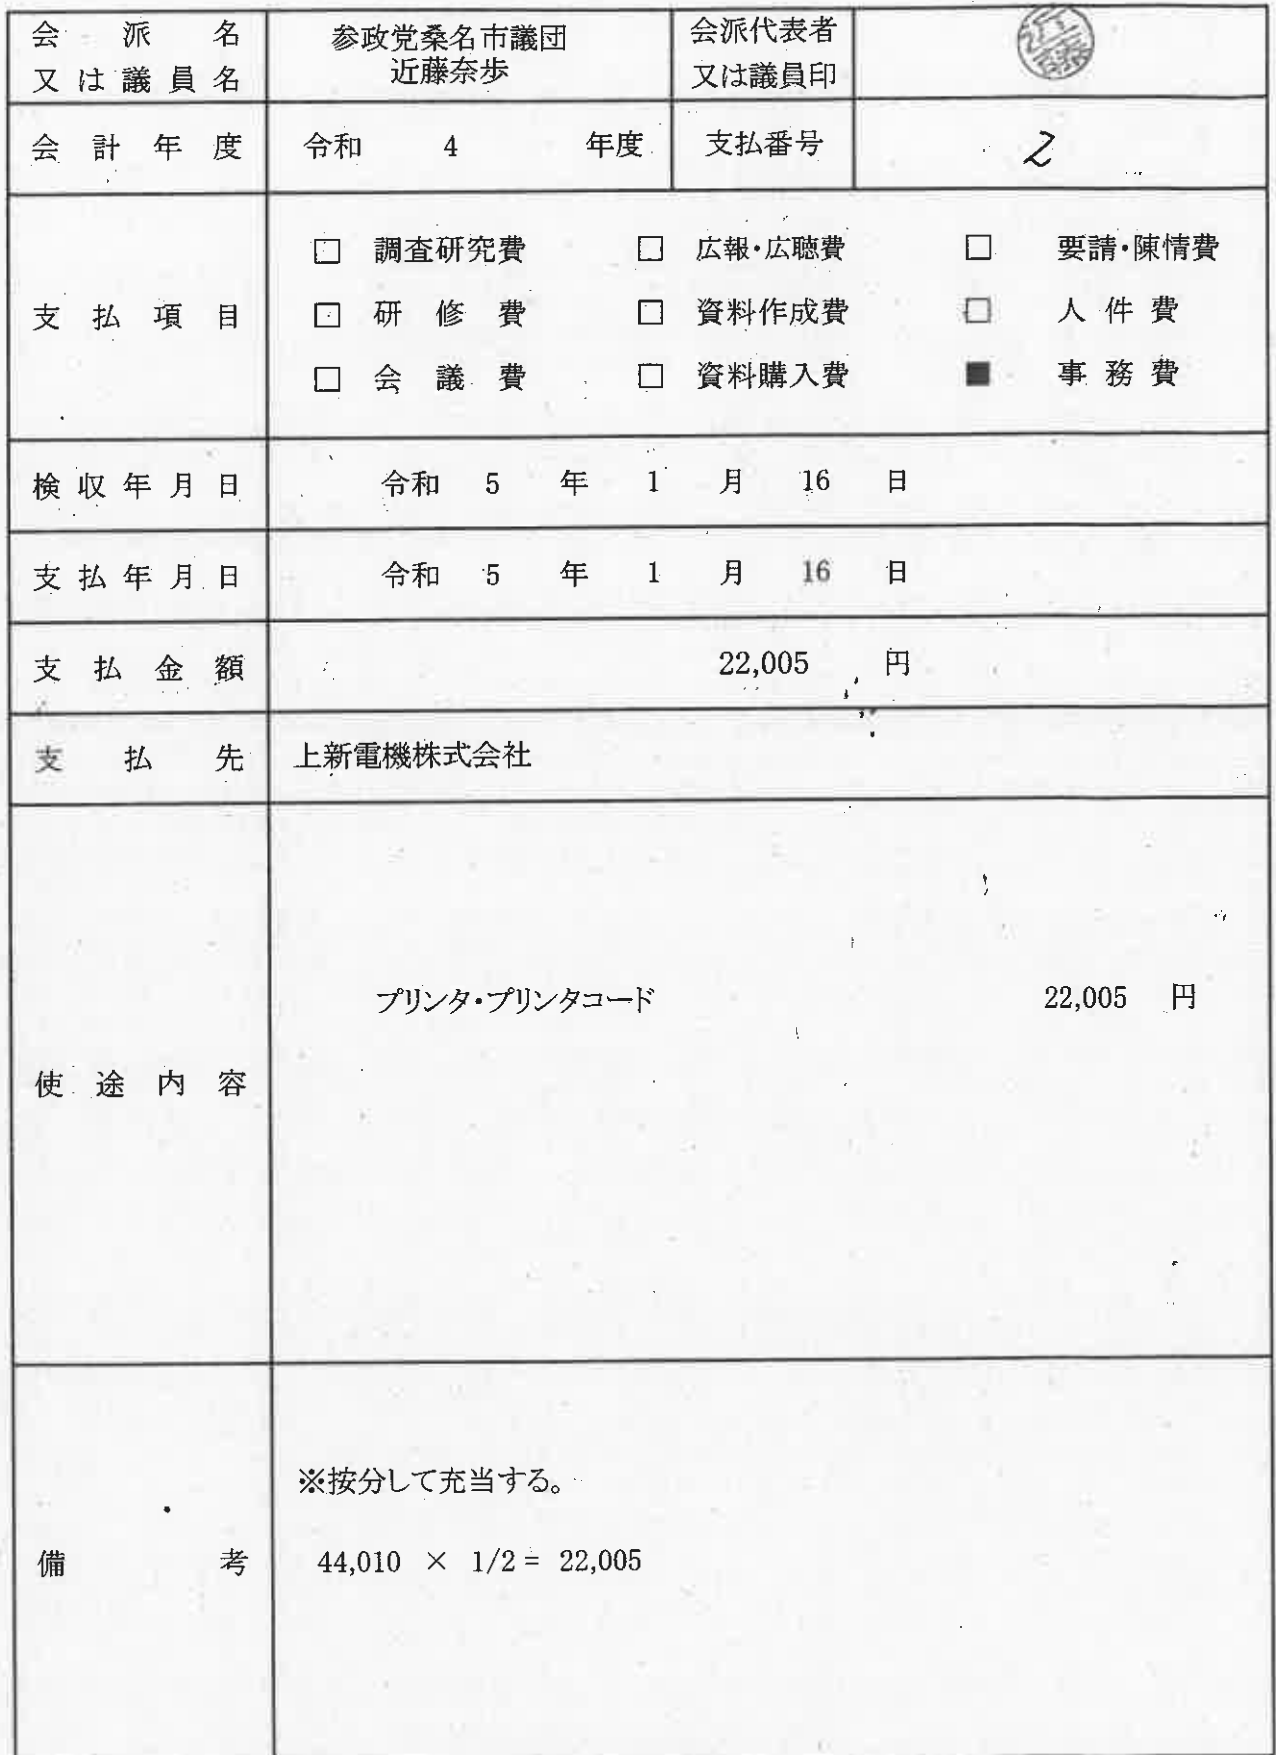 会派名
又は議員名
参政党桑名市議団
近藤奈歩
会派代表者
又は議員印
近藤
会計年度
令和 4 年度
支払番号
2
支払項目
□ 調査研究費 □ 広報・広聴費 □ 要請・陳情費
□ 研修費 □ 資料作成費 □ 人件費
□ 会議費 □ 資料購入費 ■ 事務費
検収年月日
令和 5 年 1 月 16 日
支払年月日
令和 5 年 1 月 16 日
支払金額
22,005 円
支払先
上新電機株式会社
使途内容
プリンタ・プリンタコード 22,005 円
備考
※按分して充当する。
44,010 × 1/2 = 22,005